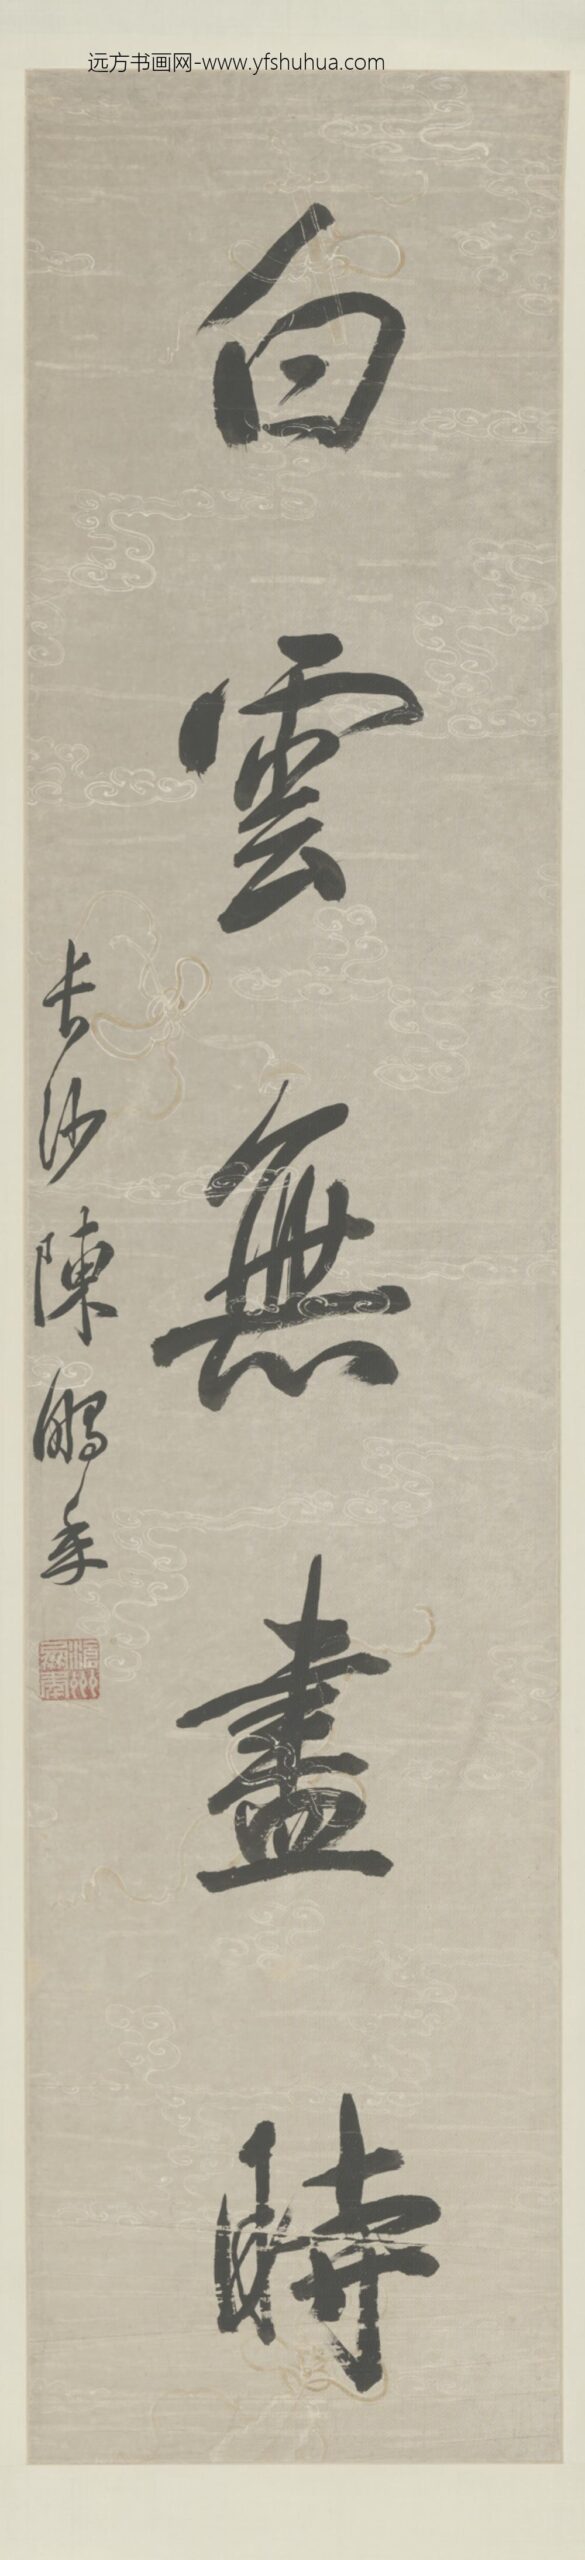 远方书画网-www.yfshuhua.com
白雲無盡時
長沙陳鵬年